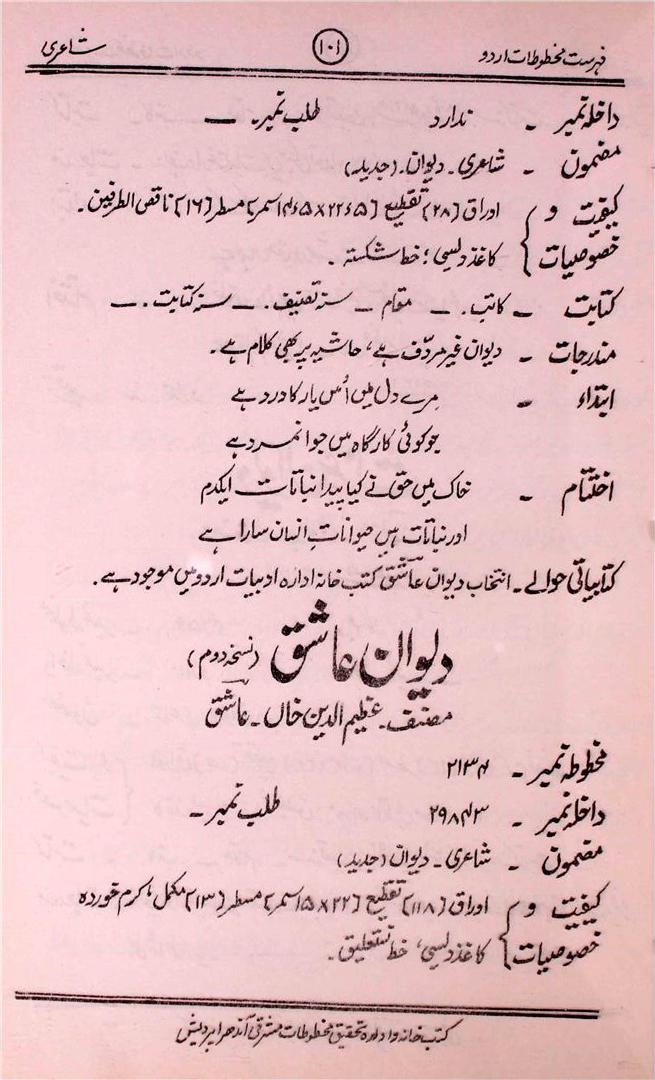 فہرست مخطوطات اردو ۱۰۱ شاعری
داخلہ نمبر - ندارد طلب نمبر - —
مضمون - شاعری - دیوان - (جدید)
کیفیت و اوراق (۲۸) تقطیع سمر مسطر (۱۶) ناقص الطرفین -
خصوصیات کاغذ دلیسی؛ خط شکستہ -
کتابت - کاتب - — مقام - سنہ تصنیف - — سنہ کتابت - —
مندرجات - دیوان غیر مردّف ہے، حاشیہ پر بھی کلام ہے -
ابتداء - مرے دل میں اُس یار کا درد ہے
جو کوئی کارگاہ میں جوانمرد ہے
اختتام - خاک میں حق نے کیا پیدا نباتات ایکدم
اور نباتات ہیں حیواناتِ انسان سارا ہے
کتابیاتی حوالے - انتخاب دیوان عاشق کتب خانہ ادارہ ادبیات اردو میں موجود ہے -
دیوان عاشق (نسخہ دوم)
مصنف - عظیم الدین خاں - عاشق
مخطوطہ نمبر - ۲۱۳۴
داخلہ نمبر - ۲۹۸۴۳ طلب نمبر -
مضمون - شاعری - دیوان (جدید)
کیفیت و اوراق (۱۱۸) تقطیع (۲۲×۱۵ سمر) مسطر (۱۳) مکمل کرم خوردہ
خصوصیات کاغذ دلیسی، خط نستعلیق -
کتب خانہ و ادارہ تحقیق مخطوطات مشرقی آندھرا پردیش